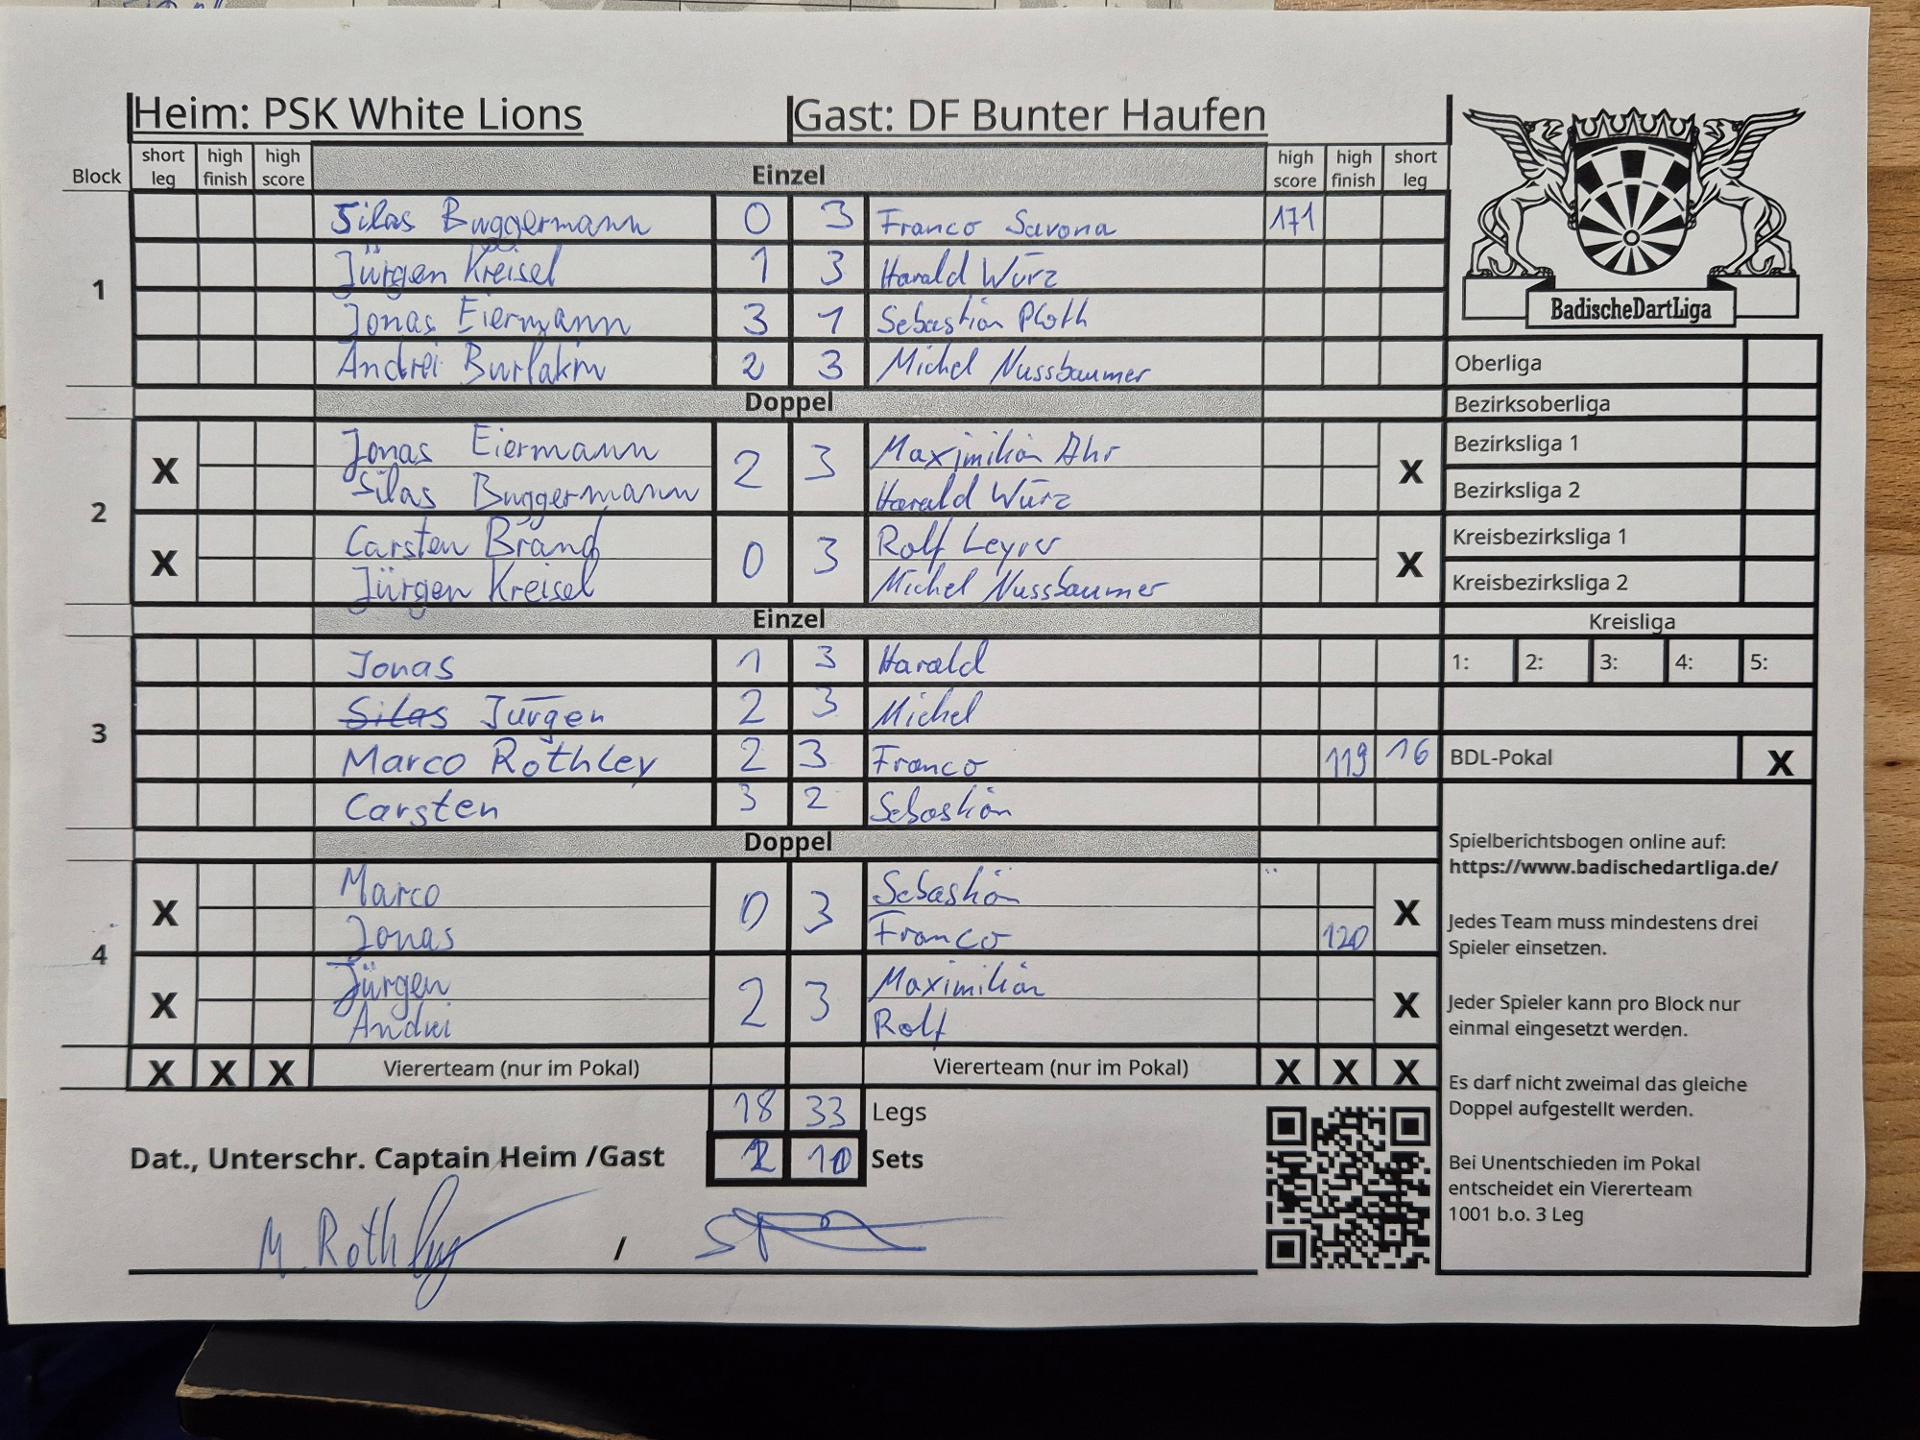 Heim: PSK White Lions Gast: DF Bunter Haufen
Block short leg high finish high score Einzel high score high finish short leg
1
Silas Buggermann 0 3 Franco Savona 171
Jürgen Kreisel 1 3 Harald Würz
Jonas Eiermann 3 1 Sebastian Ploth
Andrei Burlakin 2 3 Michel Nussbaumer
Doppel
2
X Jonas Eiermann 2 3 Maximilian Ahr X
Silas Buggermann Harald Würz
X Carsten Brand 0 3 Rolf Leyrer X
Jürgen Kreisel Michel Nussbaumer
Einzel
3
Jonas 1 3 Harald
Silas Jürgen 2 3 Michel
Marco Rothley 2 3 Franco 119 16
Carsten 3 2 Sebastian
Doppel
4
X Marco 0 3 Sebastian X
Jonas Franco 120
X Jürgen 2 3 Maximilian X
Andrei Rolf
X X X Viererteam (nur im Pokal) Viererteam (nur im Pokal) X X X
18 33 Legs
Dat., Unterschr. Captain Heim /Gast 2 10 Sets
M. Rothley /
BadischeDartLiga
Oberliga
Bezirksoberliga
Bezirksliga 1
Bezirksliga 2
Kreisbezirksliga 1
Kreisbezirksliga 2
Kreisliga
1: 2: 3: 4: 5:
BDL-Pokal X
Spielberichtsbogen online auf:
https://www.badischedartliga.de/
Jedes Team muss mindestens drei
Spieler einsetzen.
Jeder Spieler kann pro Block nur
einmal eingesetzt werden.
Es darf nicht zweimal das gleiche
Doppel aufgestellt werden.
Bei Unentschieden im Pokal
entscheidet ein Viererteam
1001 b.o. 3 Leg